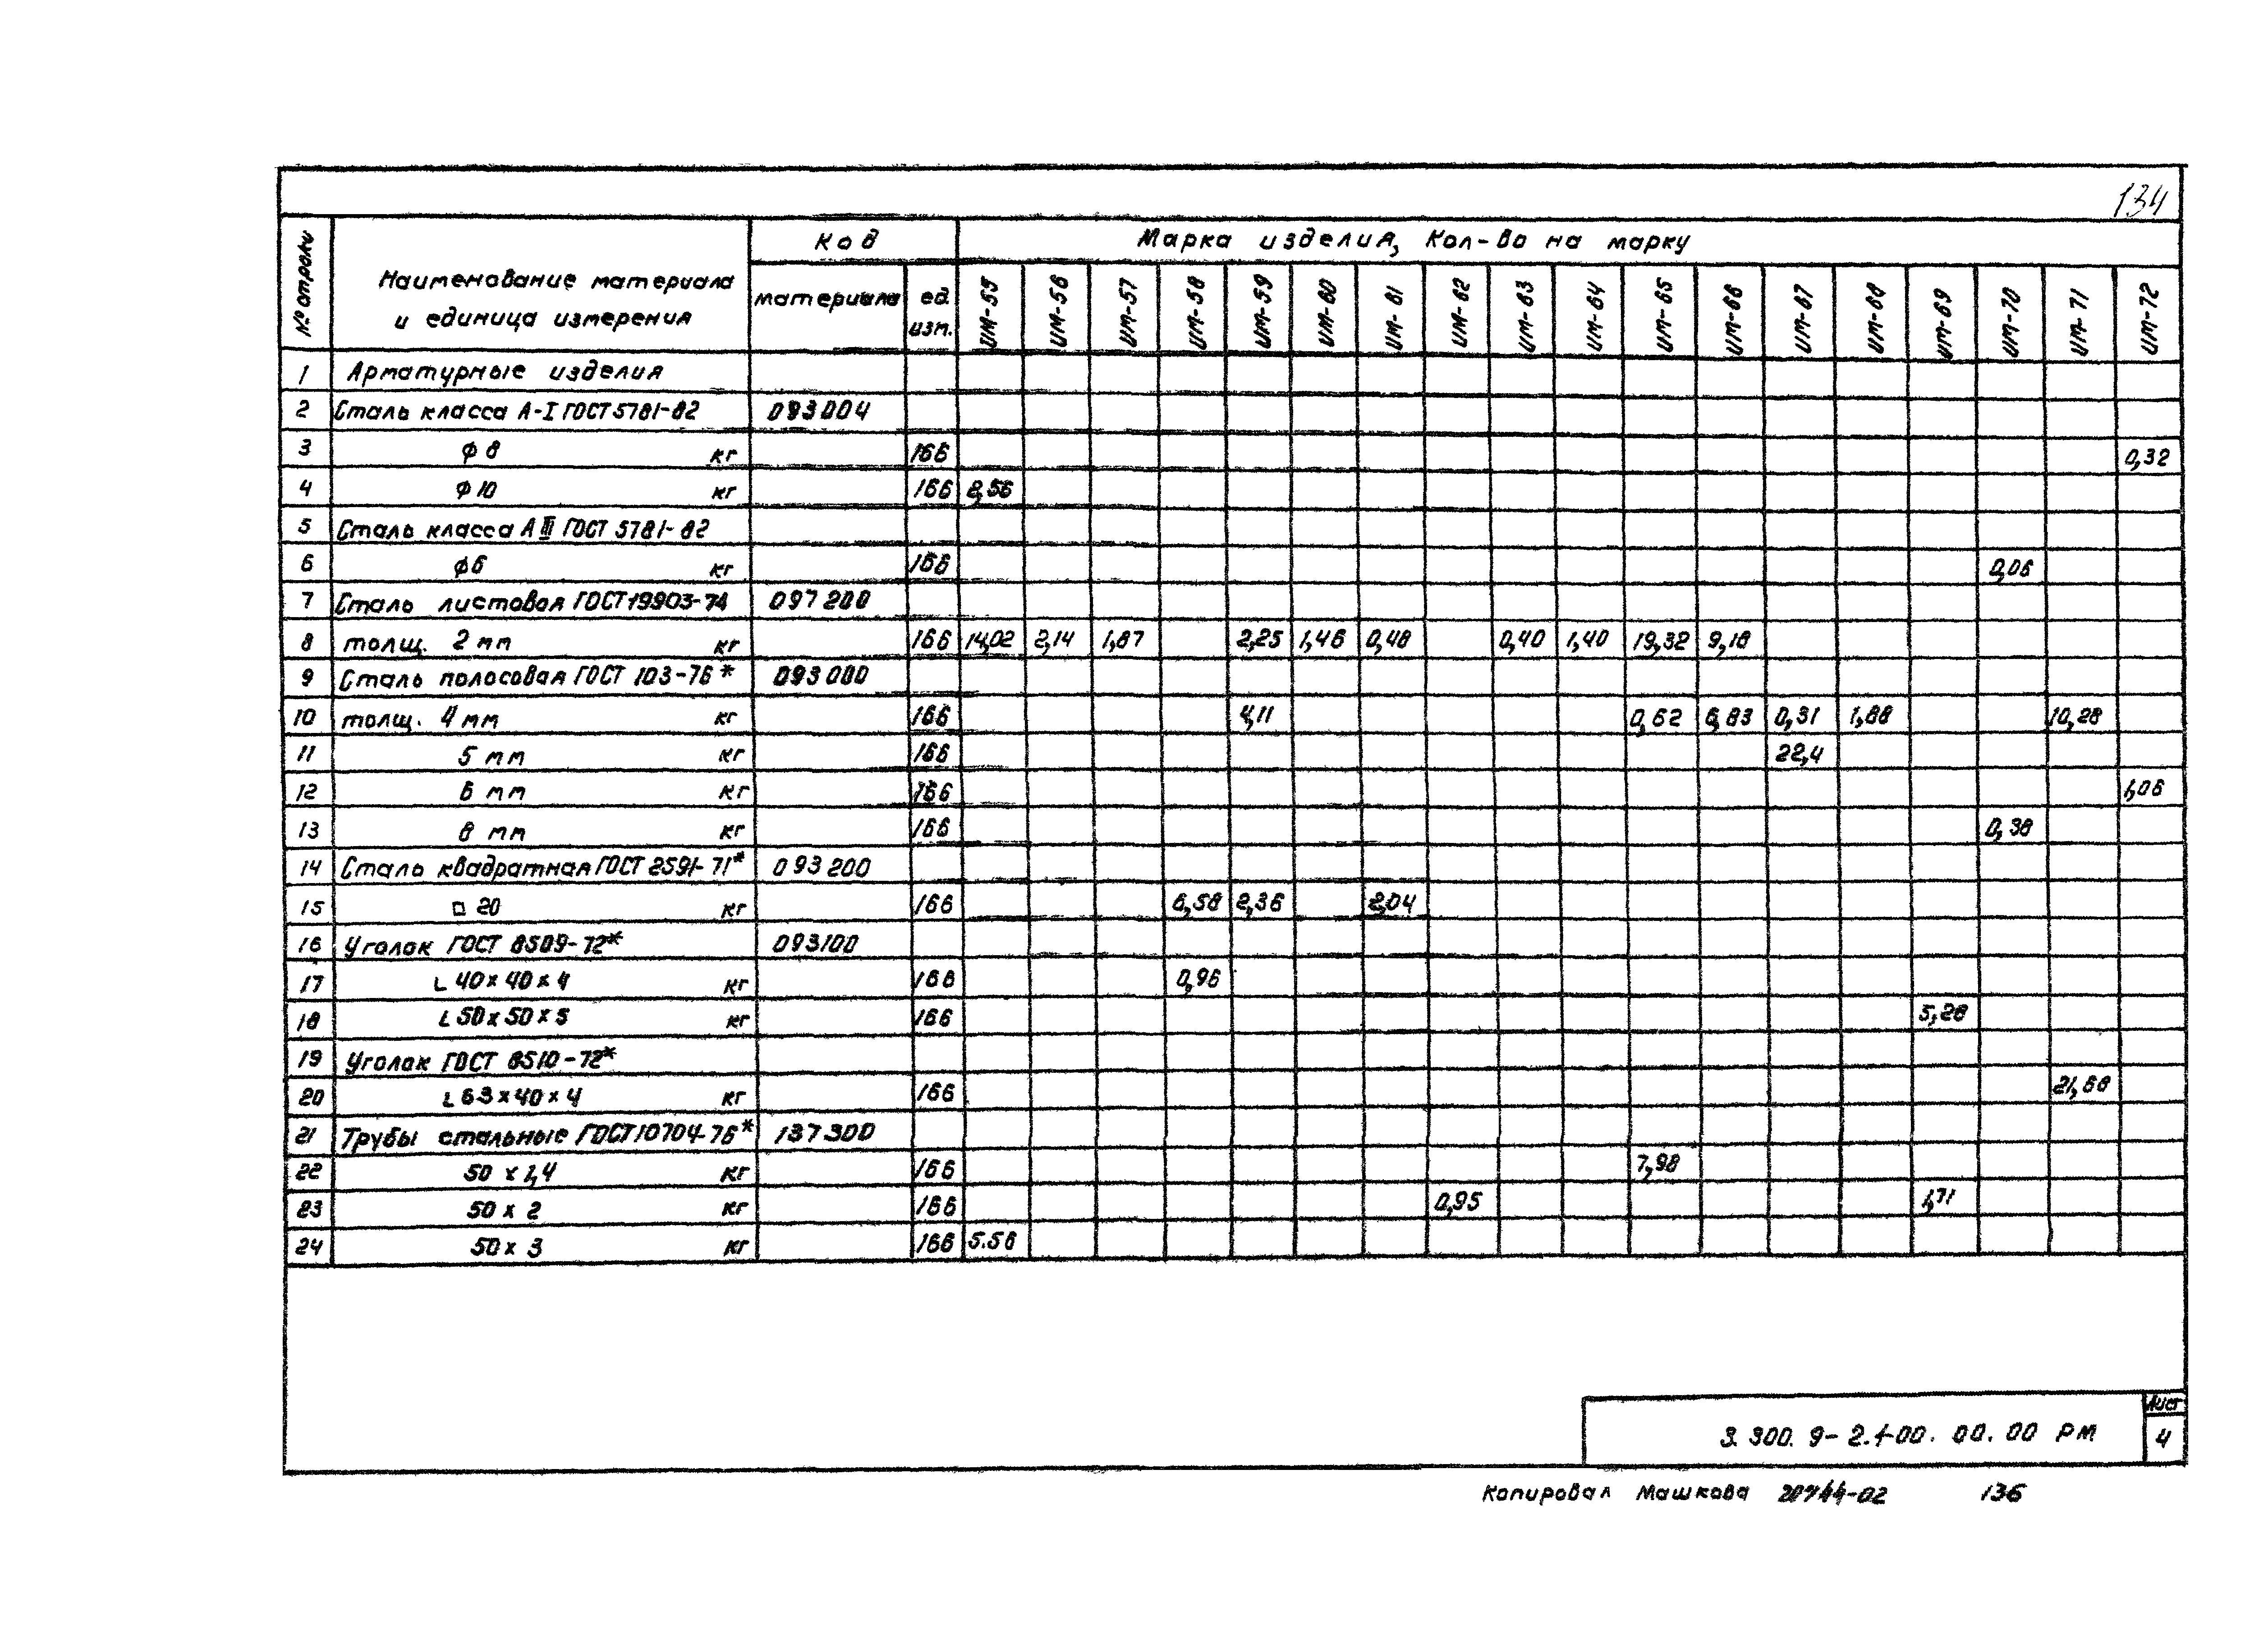 134
№ строки
Наименование материала
и единица измерения
Код
материала
ед.
изм.
Марка изделия, Кол-во на марку
ИМ-55 ИМ-56 ИМ-57 ИМ-58 ИМ-59 ИМ-60 ИМ-61 ИМ-62 ИМ-63 ИМ-64 ИМ-65 ИМ-66 ИМ-67 ИМ-68 ИМ-69 ИМ-70 ИМ-71 ИМ-72
1 Арматурные изделия
2 Сталь класса А-I ГОСТ 5781-82 093004
3 ϕ 8 кг 166 0,32
4 ϕ 10 кг 166 2,56
5 Сталь класса А III ГОСТ 5781-82
6 ϕ6 кг 166 0,06
7 Сталь листовая ГОСТ 19903-74 097200
8 толщ. 2 мм кг 166 14,02 2,14 1,87 2,25 1,46 0,48 0,40 1,40 19,32 9,18
9 Сталь полосовая ГОСТ 103-76* 093000
10 толщ. 4 мм кг 166 4,11 0,62 6,83 0,31 1,88 10,28
11 5 мм кг 166 22,4
12 6 мм кг 166 1,06
13 8 мм кг 166 0,38
14 Сталь квадратная ГОСТ 2591-71* 093200
15 □ 20 кг 166 6,58 2,36 2,04
16 Уголок ГОСТ 8509-72* 093100
17 L 40×40×4 кг 166 0,96
18 L 50×50×5 кг 166 5,28
19 Уголок ГОСТ 8510-72*
20 L 63×40×4 кг 166 21,68
21 Трубы стальные ГОСТ 10704-76* 137300
22 50 × 1,4 кг 166 7,98
23 50 × 2 кг 166 0,95 1,71
24 50 × 3 кг 166 5.56
3.300.9-2.1-00.00.00 РМ
Лист
4
Копировал Машкова 20744-02 136